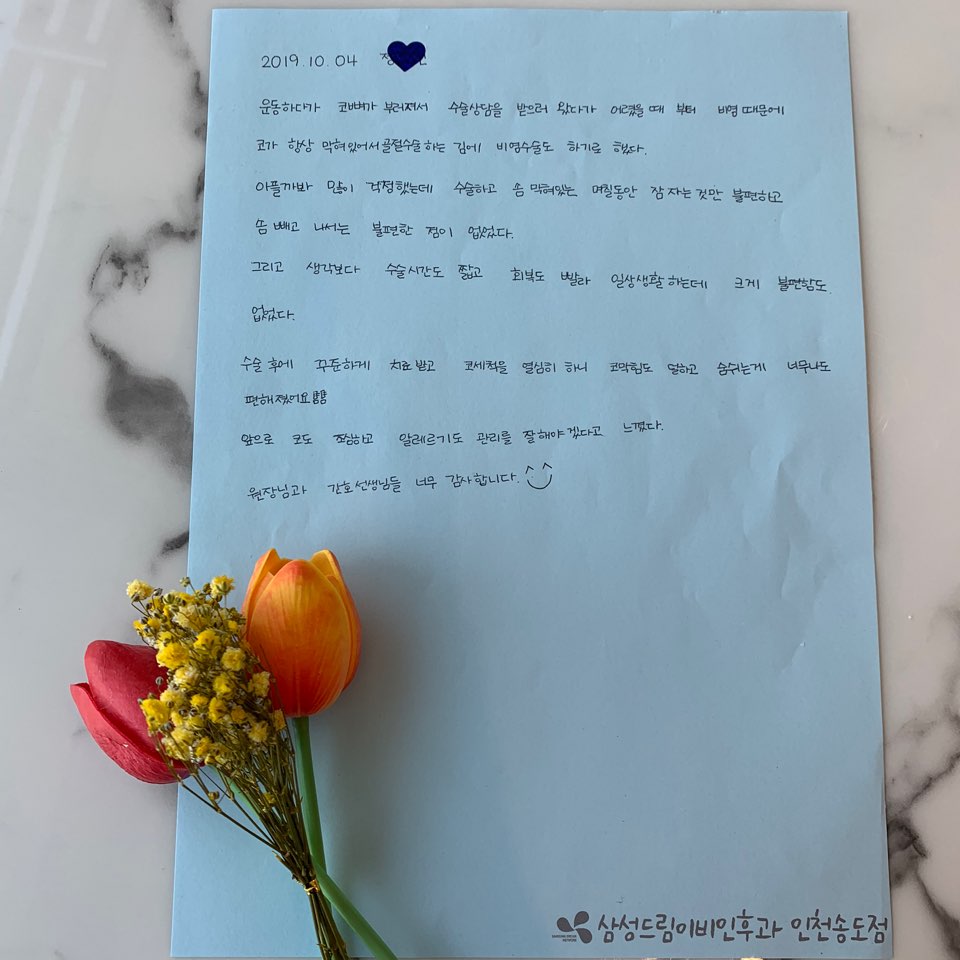 2019.10.04
운동하다가 코뼈가 부러져서 수술상담을 받으러 왔다가 어렸을때 부터 비염때문에
코가 항상 막혀있어서 골절수술하는 김에 비염수술도 하기로 했다.
아플까봐 많이 걱정했는데 수술하고 솜 막혀있는 며칠동안 잠 자는것만 불편하고
솜 빼고 나서는 불편한 점이 없었다.
그리고 생각보다 수술시간도 짧고 회복도 빨라 일상생활하는데 크게 불편함도
없었다.
수술 후에 꾸준하게 치료받고 코세척을 열심히 하니 코막힘도 덜하고 숨쉬는게 너무나도
편해졌어요!!
앞으로 코도 조심하고 알레르기도 관리를 잘해야겠다고 느꼈다.
원장님과 간호선생님들 너무 감사합니다.
삼성드림이비인후과 인천송도점